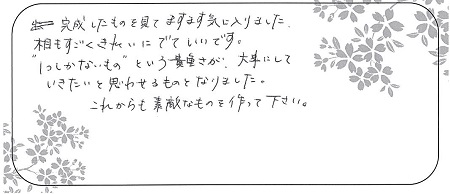 完成したものを見てますます気に入りました。
相もすごくきれいにでていいです。
"1つしかないもの"という貴重さが、大事にして
いきたいと思わせるものとなりました。
これからも素敵なものを作って下さい。